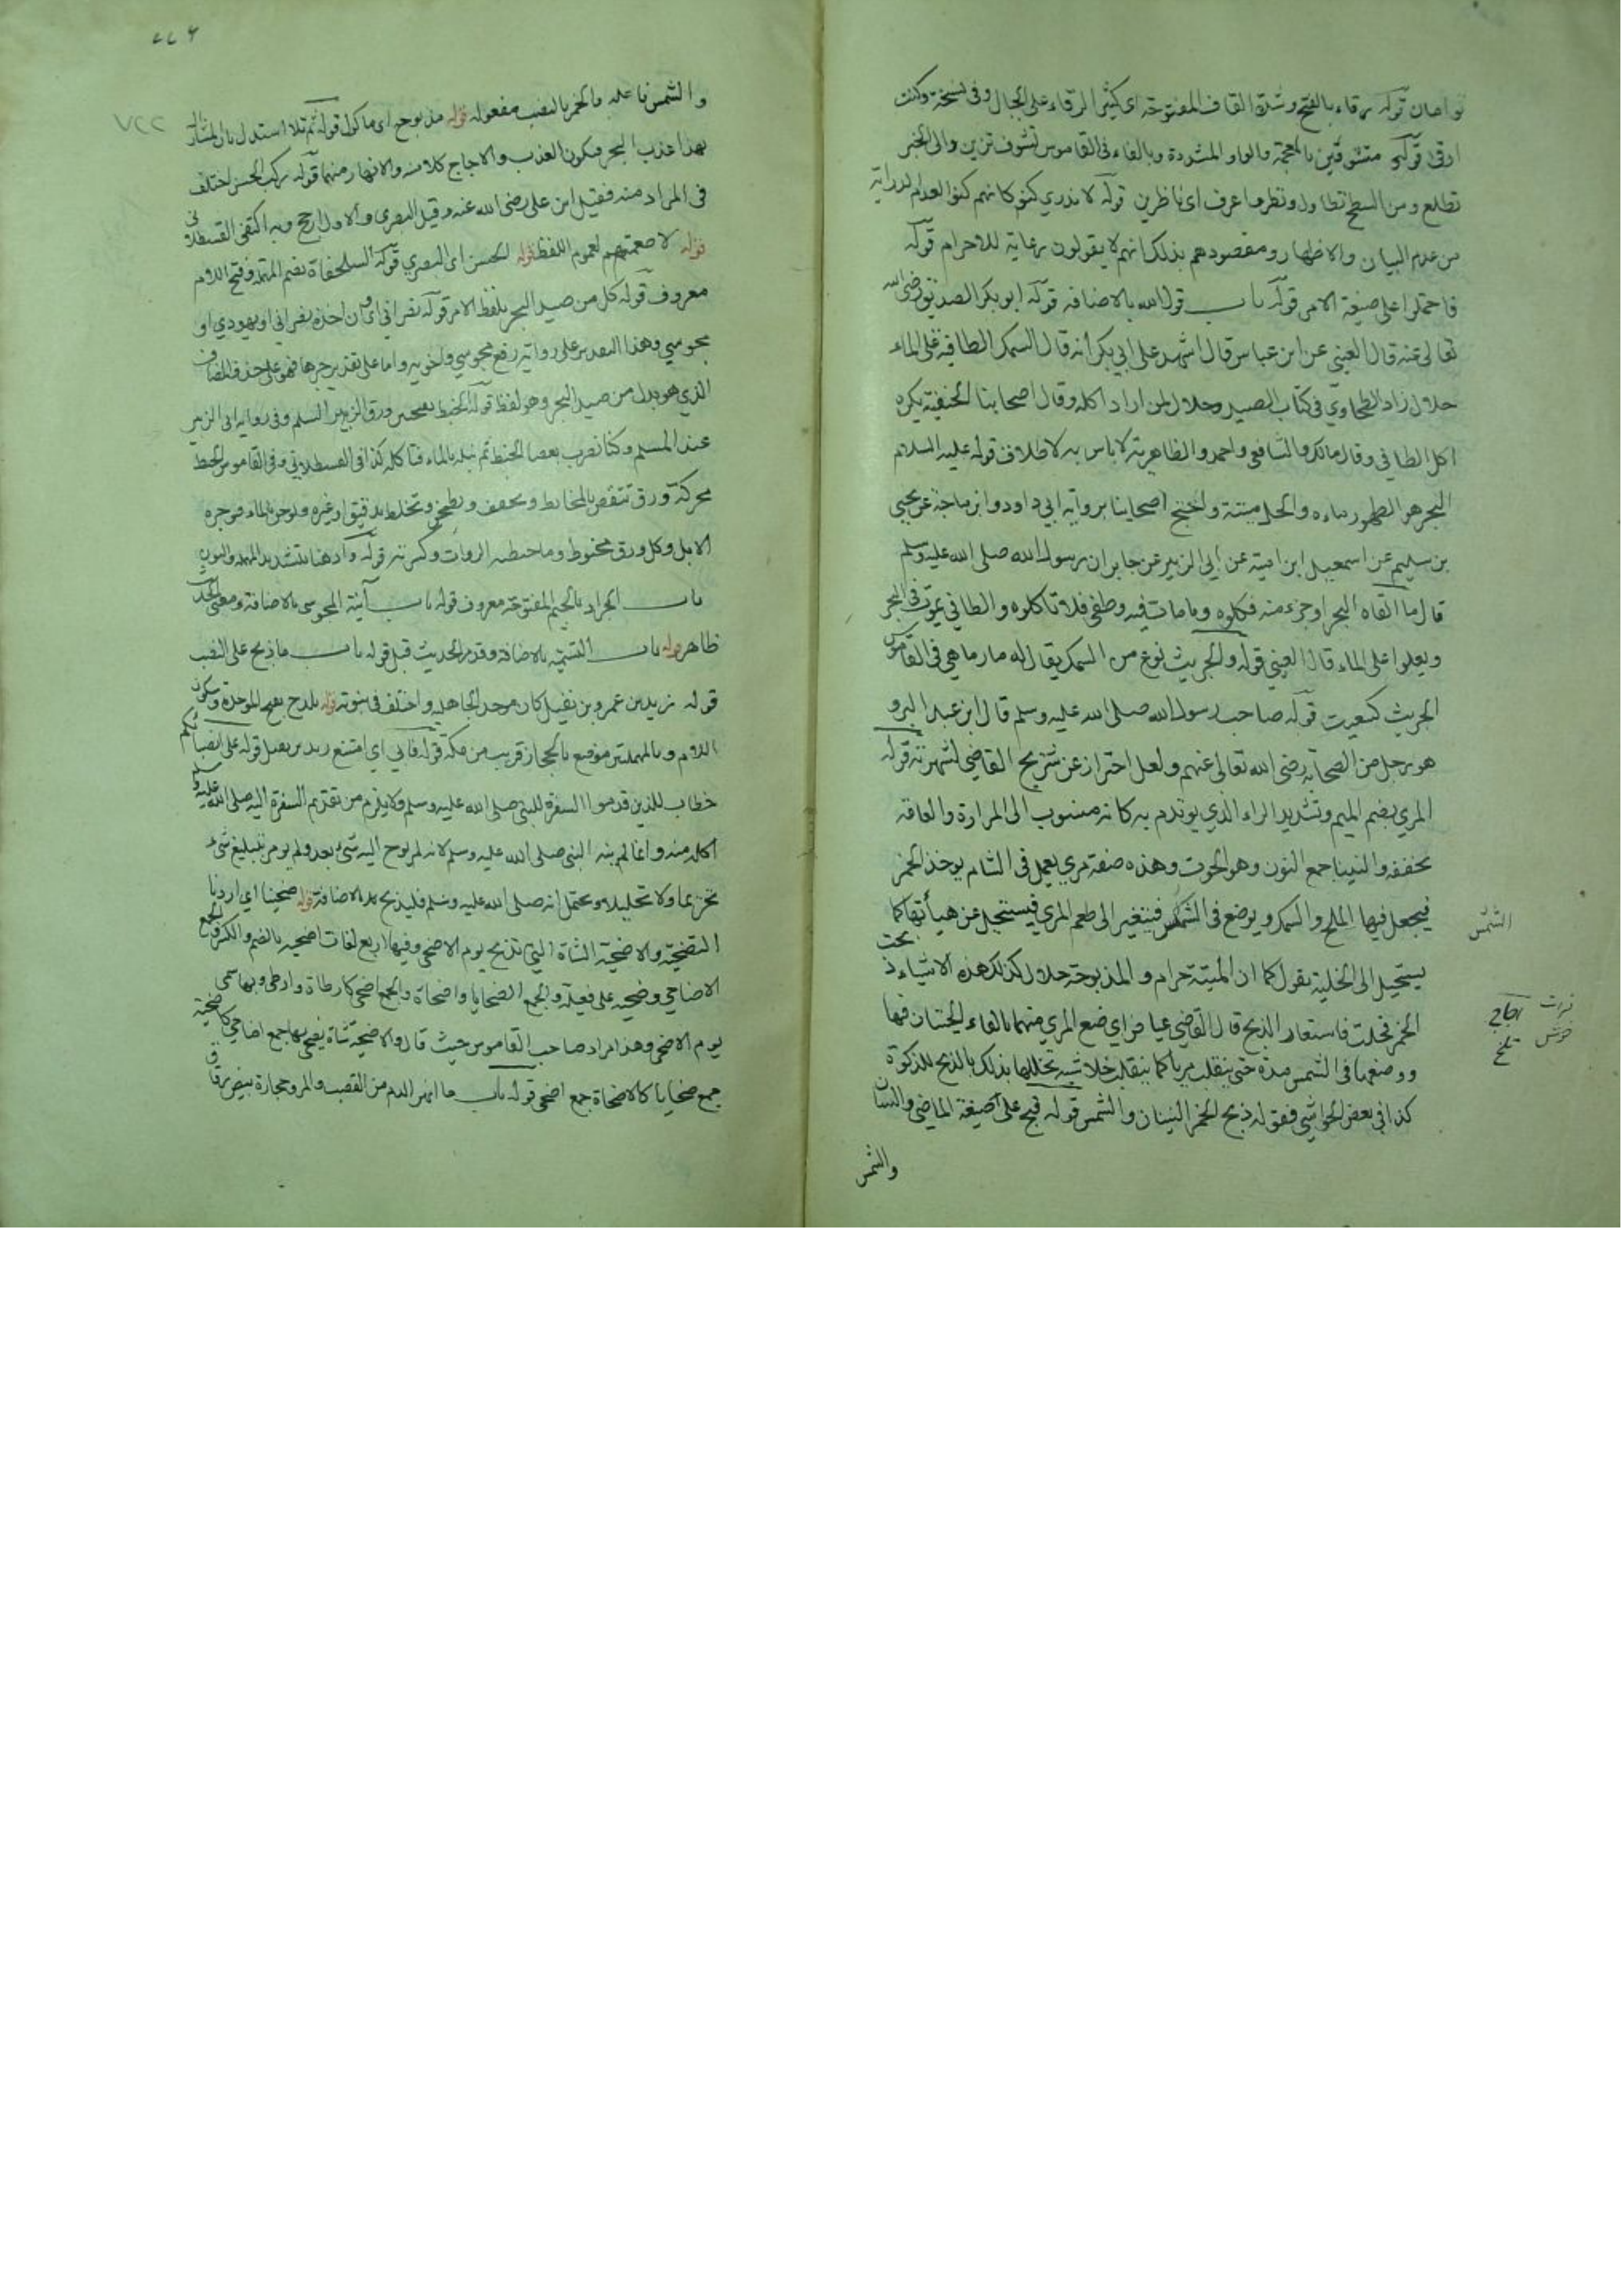 نواهان قوله رقاء بالفتح وشدة القاف المفتوحة اى كثير الرقاء على الجبال وفى نسخة وكنت
ارقى قوله متشوقين بالمعجمة والواو المشددة وبالفاء فى القاموس تشوف تزين والى الخبر
تطلع ومن السطح تطاول ونظر فما عرف اى ناظرين قوله لا ندرى كنو كانهم كنوا لعدم الدراية
من عدم البيان والاظهار ومقصودهم بذلك انهم لا يقولون رعاية للاحرام قوله
فاحتملوا على صيغة الامر قوله باب قول الله بالاضافه قوله ابو بكر الصديق رضى الله
تعالى عنه قال العينى عن ابن عباس قال اشهد على ابى بكر أنه قال السمك الطافيه على الماء
حلال زاد الطحاوي فى كتاب الصيد وحلال لمن اراد اكله وقال اصحابنا الحنفية يكره
اكل الطافى وقال مالك والشافعى واحمد والظاهرية لا باس به لاطلاق قوله عليه السلام
البحر هو الطهور ماءه والحل ميتته واحتج اصحابنا برواية ابى داود وابن ماجة عن يحيى
بن سليم عن اسمعيل ابن امية عن ابى الزبير عن جابر ان رسول الله صلى الله عليه وسلم
قال ما القاه البحر او جزر منه فكلوه وما مات فيه وطفى فلا تاكلوه والطافى يموت فى البحر
ويعلوا على الماء قال العينى قوله والجريث نوع من السمك يقال له مارماهى فى القاموس
الجريث كسكيت قوله صاحب رسول الله صلى الله عليه وسلم قال ابن عبد البر و
هو رجل من الصحابة رضى الله تعالى عنهم ولعل احتراز عن شريح القاضى لشهرته قوله
المري بضم الميم وتشديد الراء الذي يوتدم به كانه منسوب الى المرارة والعامة
تخففه والنينان جمع النون وهو الحوت وهذه صفة مري يعمل فى الشام يوخذ الخمر
فيجعل فيها الملح والسمك ويوضع فى الشمس فيتغير الى طعم المري فيستحيل عن هيأتها كما
يستحيل الى الخلية يقول كما ان الميتة حرام والمذبوحة حلال كذلك هذه الاشياء ذبحت
الخمر فحلت فاستعار الذبح قال القاضى عياض اى ضع المري منهما بالقاء الحيتان فيها
ووضعها فى الشمس مدة حتى ينقلب مريا كما ينقلب خلا شبه تخليلها بذلك بالذبح للذكوة
كذا فى بعض الحواشى فقوله ذبح الخمر النينان والشمس قوله ذبح على صيغة الماضى والنينان
والشمس
الشمس
فرات
اجاج
خوش
تلخ
والشمس فاعله والخمر بالنصب مفعوله قوله مذبوح اى ماكول قوله ثم تلا استدل بان المشار اليه
بهذا عذب البحر فيكون العذب والاجاج كلا منه والانهار منهما قوله ركب الحسن اختلف
فى المراد منه فقيل ابن على رضى الله عنه وقيل البصرى والاول ارجح وبه اكتفى القسطلانى
قوله لاطعمتهم لعموم اللفظ قوله الحسن اى البصري قوله السلحفاة بضم المهملة وفتح اللام
معروف قوله كل من صيد البحر بلفظ الامر قوله نصرانى اى وان اخذه نصرانى او يهودي او
مجوسي وهذا التقدير على رواية رفع مجوسي واخويه واما على تقدير جرها فهو على حذف المضاف
الذي هو بدل من صيد البحر وهو لفظ قوله الخبط بفتحتين ورق الزبير السلم وفى رواية ابى الزبير
عند المسلم وكنا نضرب بعصا الخبط ثم نبله بالماء فناكله كذا فى القسطلانى وفى القاموس الخبط
محركة ورق تنفض بالمخابط وتجفف وتطحن وتخلط بدقيق او غيره ويوخر بالماء فيوجره
الابل وكل ورق مخبوط وما خبطته الدواب وكسرته قوله وادهنا بتشديد المهملة والنون
باب الجراد بالجيم المفتوحة معروف قوله باب آنية المجوسى بالاضافة ومعنى الحديث
ظاهر قوله باب التسمية بالاضافة وقدم الحديث قبل قوله باب ما ذبح على النصب
قوله زيد بن عمرو بن نفيل كان موحد الجاهلية واختلف فى نبوته قوله بلدح بفتح الموحدة وسكون
اللام وبالمهملتين موضع بالحجاز قريب من مكة قوله فابى اى امتنع زيد بن نفيل قوله على انصابكم
خطاب للذين قدموا السفرة للنبى صلى الله عليه وسلم ولا يلزم من تقديم السفرة اليه صلى الله عليه وسلم
اكله منه وانما لم ينه النبى صلى الله عليه وسلم لانه لم يوح اليه شئ بعد ولم يومر بتبليغ شئ
تحريما ولا تحليلا ويحتمل انه صلى الله عليه وسلم فليذبح بالاضافة قوله ضحينا اى اردنا
التضحية والاضحية الشاة التى تذبح يوم الاضحى وفيها اربع لغات اضحيه بالضم والكسر والجمع
الاضاحى وضحيه على فعيلة والجمع الضحايا واضحاة والجمع اضحى كارطاة وارطى وبها سمى
يوم الاضحى وهذا مراد صاحب القاموس حيث قال والاضحية شاة يضحى بها جمع اضاحي كالضحية
جمع ضحايا كالاضحاة جمع اضحى قوله باب ما انهر الدم من القصب والمرو حجارة بيض رقاق